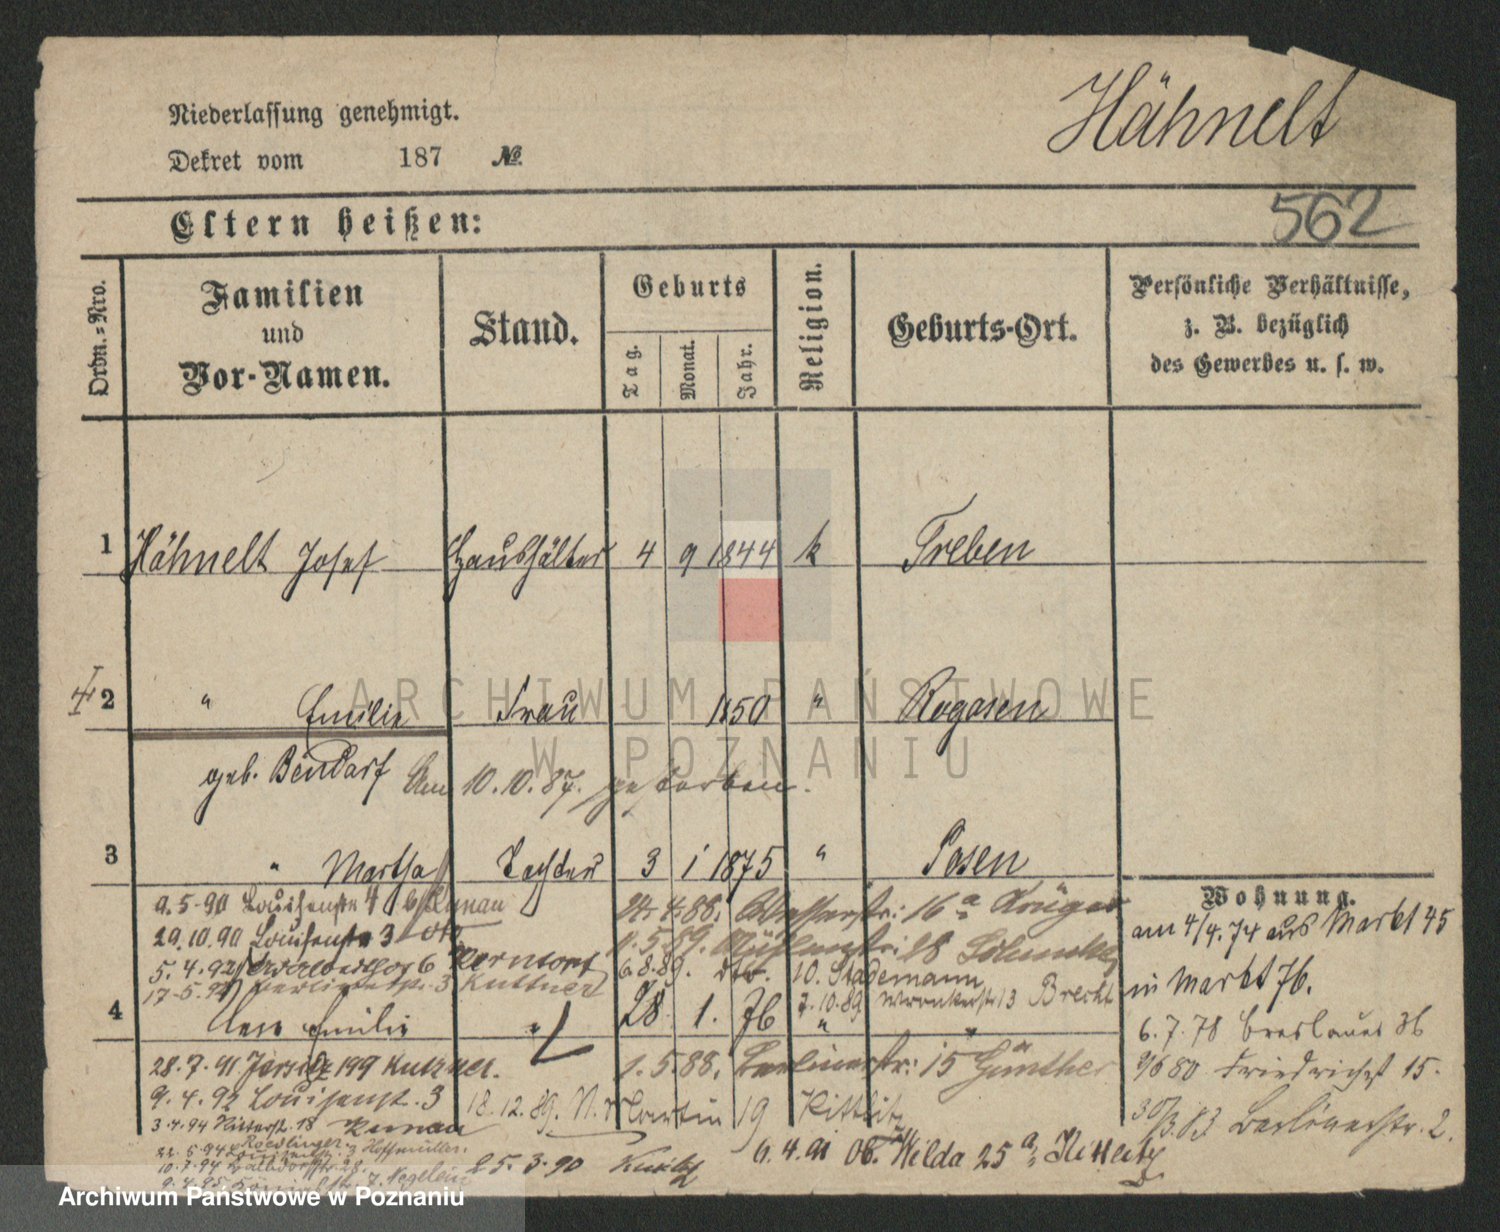 Niederlassung genehmigt.
Hähnelt
Dekret vom 187 №
562
Eltern heißen:
Ordn.=Nro.
Familien
und
Vor-Namen.
Stand.
Geburts
Tag.
Monat.
Jahr.
Religion.
Geburts-Ort.
Persönliche Verhältnisse,
z. B. bezüglich
des Gewerbes u. s. w.
1 Hähnelt Josef Haushälter 4 9 1844 k Treben
2 " Emilie Frau 1850 " Rogasen
geb. Bendarf Am 10.10.87. gestorben.
3 " Martha Tochter 3 1 1875 " Posen
Wohnung.
am 4/4.74 aus Markt 45
in Markt 76.
6.7.78 Breslauer 36
80 Friedrichst 15.
83 Berlinerstr. 2.
9.5.90 Louisenstr 4
24.4.88. Wasserstr: 16a Krüger
29.10.90 Louisenstr 3 Otto
1.5.89. Mühlenstr: 18
5.4.92 6 Berndorf
6.8.89. dto. 10. Stademann
17.5.92 Berlinerstr. 3 Kuttner
7.10.89 Wronkerstr 13 Brecht
4 Emilie " 28 1. 76 " "
28.7.91 Jersitz 199 Kutzner.
1.5.88. Berlinerstr: 15 Günther
9.4.92 Louisenst. 3
18.12.89. Martin 19 Kittlitz
3.4.94 Ritterst. 18 Kunau
22.5.94 3 Hoffmüller.
10.7.94 Wallischofstr 28. Negelein
25.3.90
6.4.91 Ob. Wilda 25a
9.4.95
ARCHIWUM PAŃSTWOWE
W POZNANIU
Archiwum Państwowe w Poznaniu